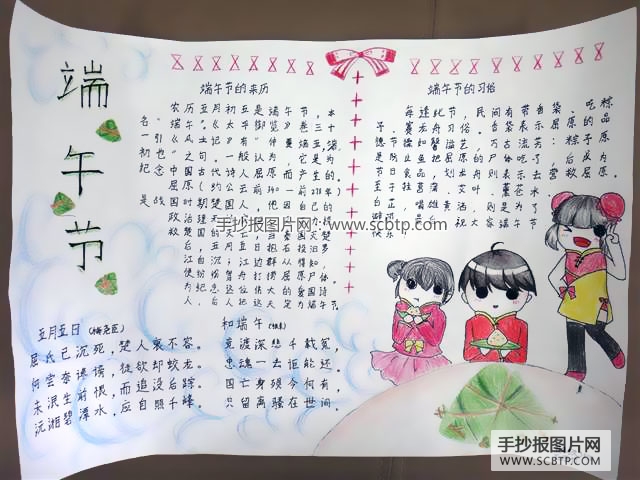 端
午
节
端午节的来历
农历五月初五是端午节,本
名"端午"。《太平御览》卷三十
一引《风土记》有"仲夏端五,端,
初也"之句。一般认为,它是为
纪念中国古代诗人屈原而产生的。
屈原(约公元前340—前278年)
是战国时期楚国人,他因自己的
后,五月五日抱石投汨罗
江自沉;江边群众得知,
便纷纷驾舟打捞屈原尸体。
为纪念这位伟大的爱国诗
人,后人把这天定为端午节。
端午节的习俗
每逢此节,民间有带香袋、吃粽
子、赛龙舟习俗。香袋表示屈原的品
德节操如馨溢芝,万古流芳;粽子原
是防止鱼把屈原的尸体吃了,后成为
节日食品,划龙舟则表示去营救屈原。
至于挂菖蒲、艾叶,薰苍水、
白芷,喝雄黄酒,则是为了
祝大家端午节
快乐!
手抄报图片网:www.scbtp.com
五月五日(梅尧臣)
屈氏已沉死,楚人哀不容。
何尝奈谗谤,徒欲却蛟龙。
未泯生前恨,而追没后踪。
沅湘碧潭水,应自照千峰。
和端午(张耒)
竞渡深悲千载冤,
忠魂一去讵能还。
国亡身殒今何有,
只留离骚在世间。
手抄报图片网
WWW.SCBTP.COM